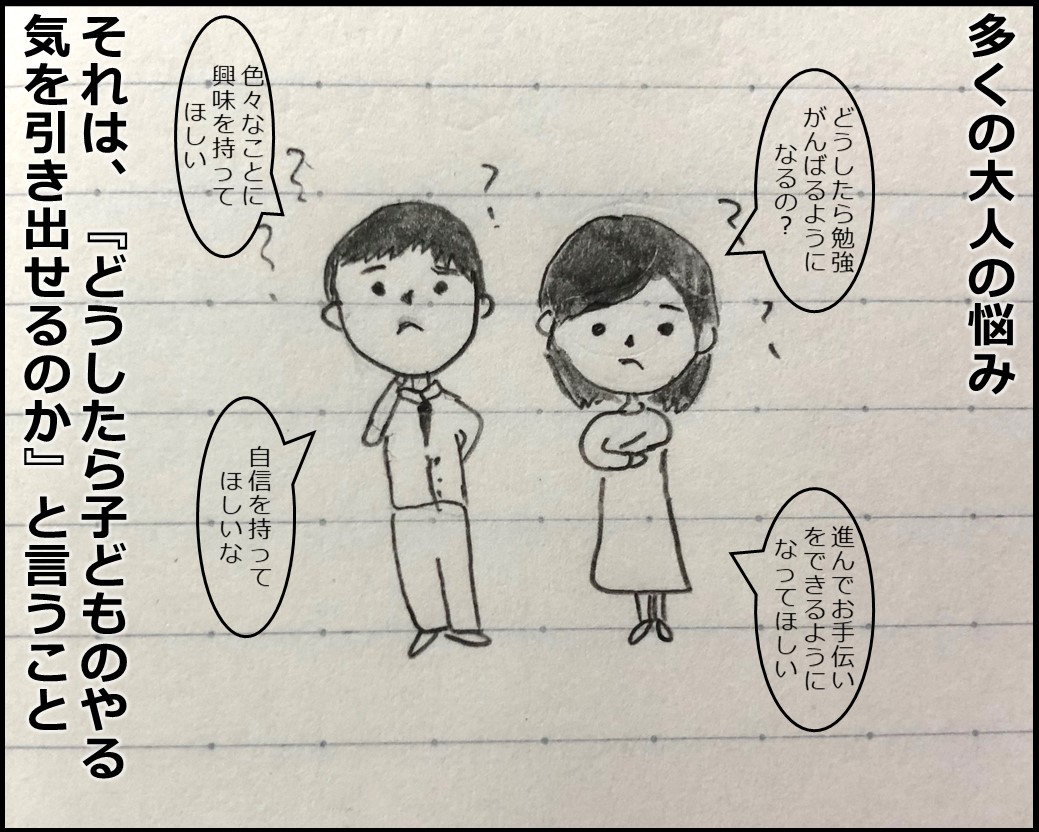 多くの大人の悩み
どうしたら勉強
がんばるように
なるの？
進んでお手伝い
をできるように
なってほしい
色々なことに
興味を持って
ほしい
自信を持って
ほしいな
それは、『どうしたら子どものやる
気を引き出せるのか』と言うこと